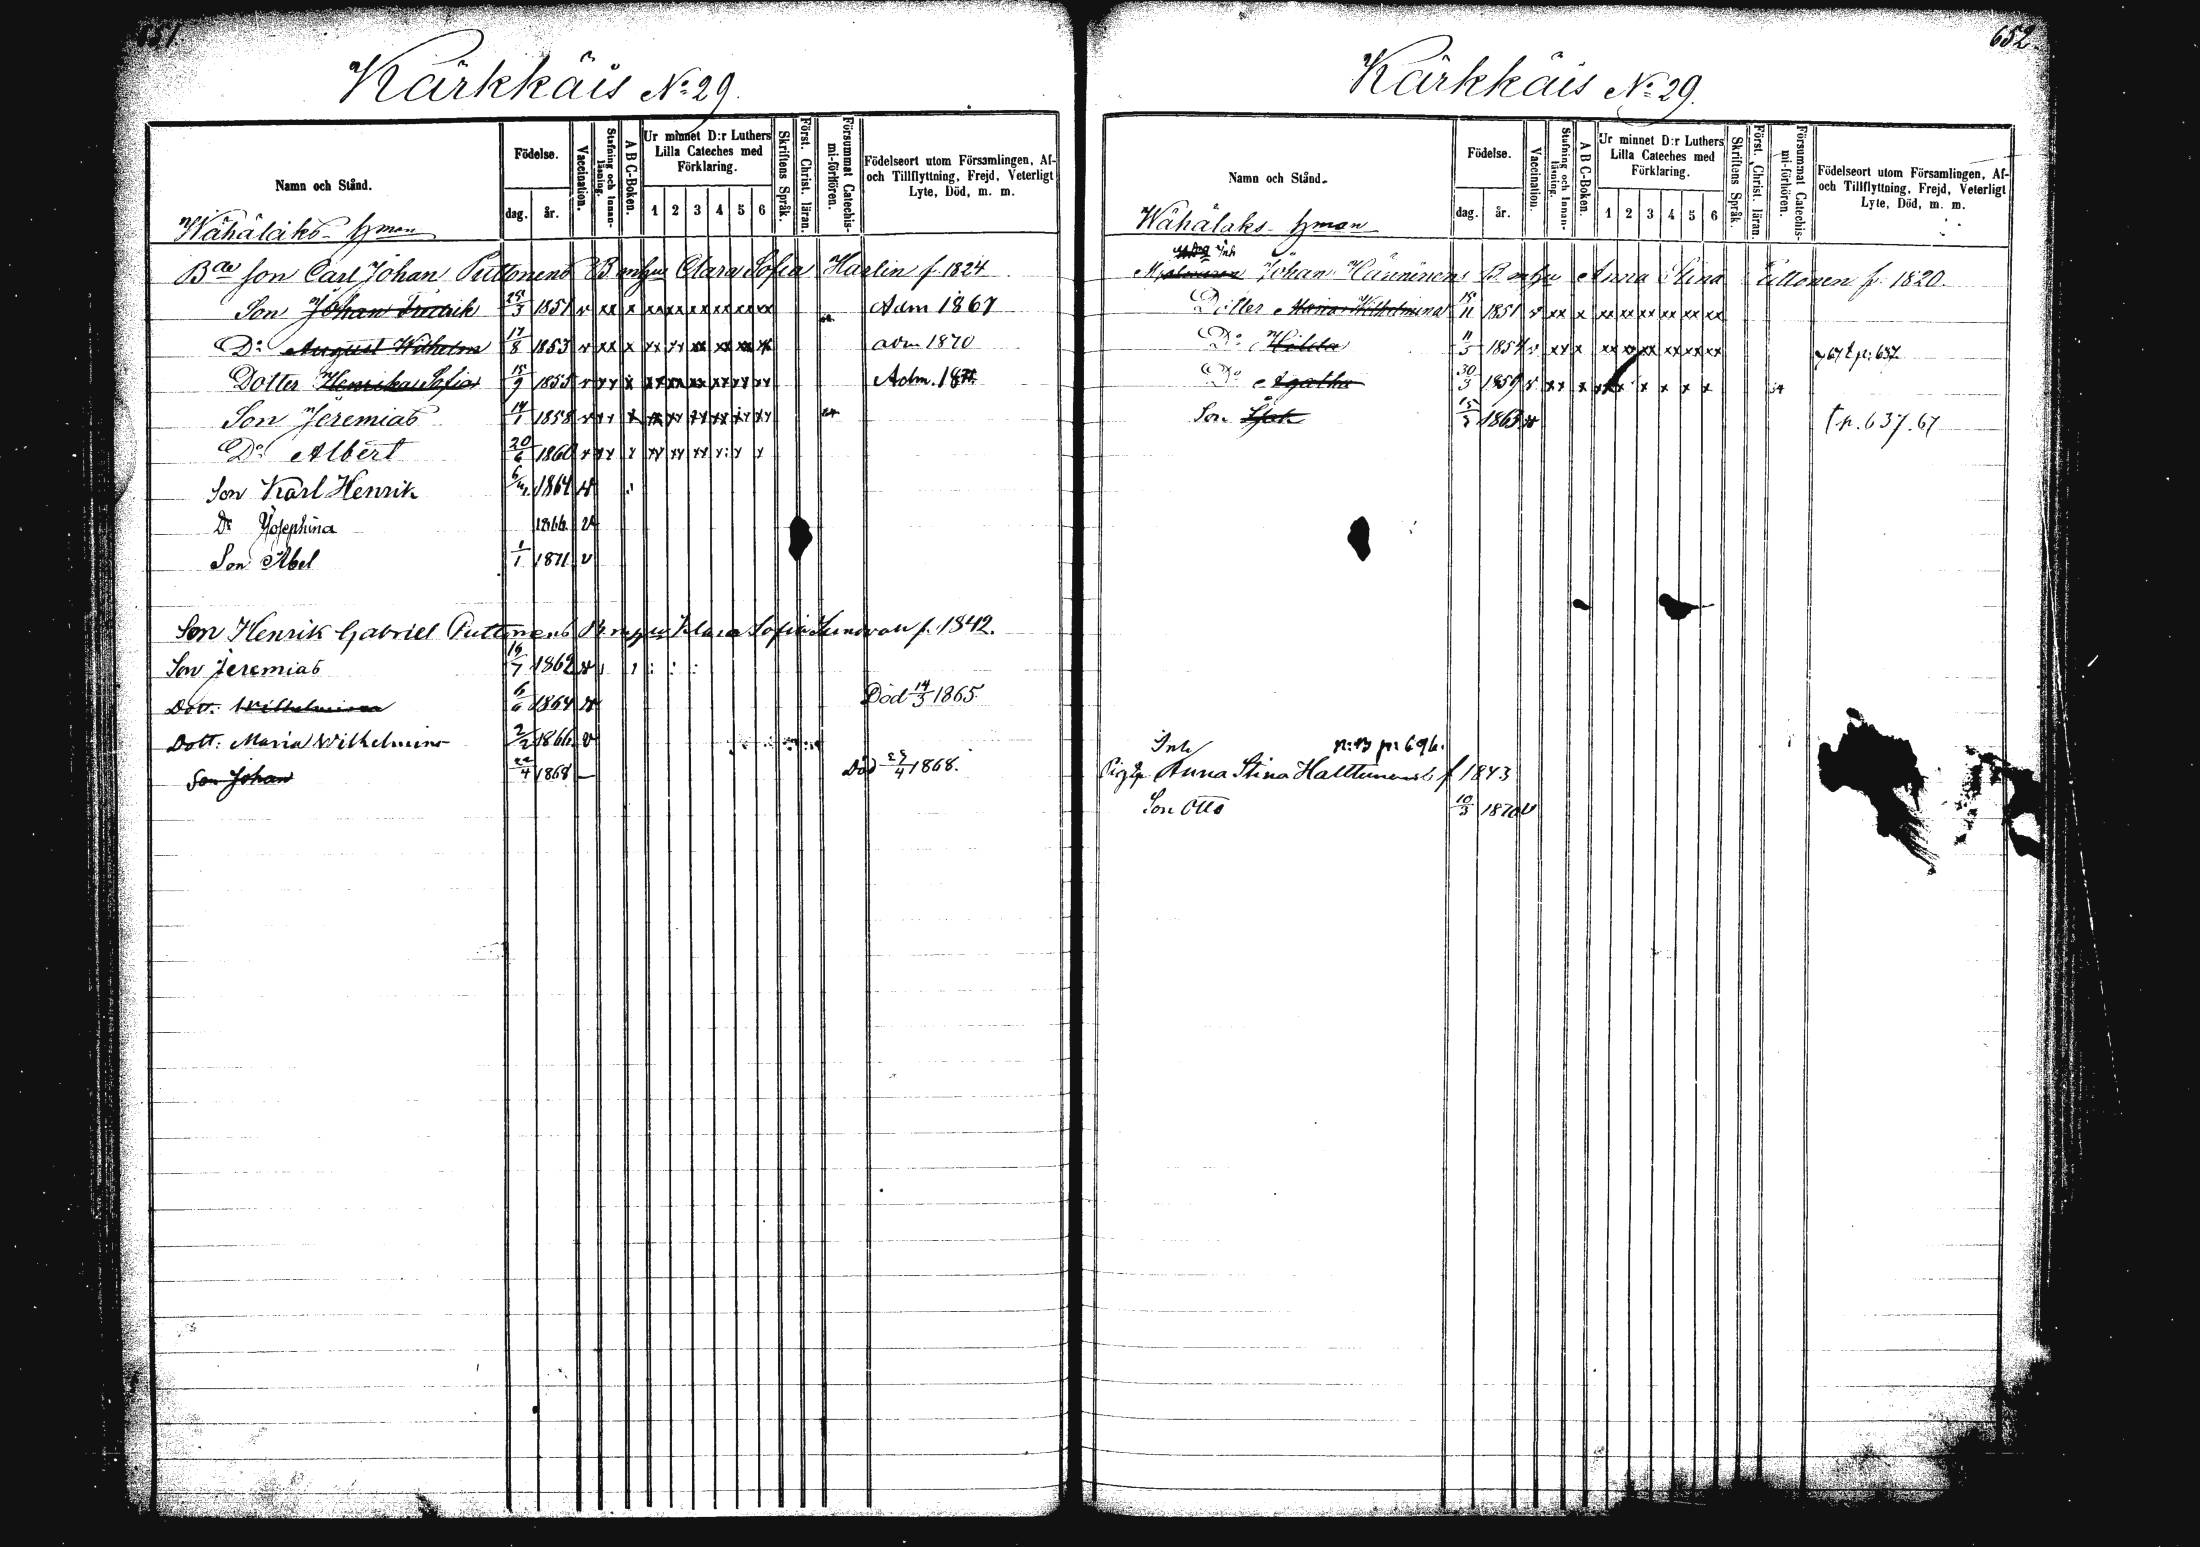 651.
Kärkkäis No 29.
Namn och Stånd.
Födelse.
dag.
år.
Vaccination.
Stafning och Innan-
läsning.
A B C-Boken.
Ur minnet D:r Luthers
Lilla Cateches med
Förklaring.
1 2 3 4 5 6
Skriftens Språk.
Först. Christ. läran.
Försummat Catechis-
mi-förhören.
Födelseort utom Församlingen, Af-
och Tillflyttning, Frejd, Veterligt
Lyte, Död, m. m.
Wähäläks hman
Bde son Carl Johan Puttonens B Clara Sofia Harlin f. 1824
Son Johan Fredrik 25/3 1851 v xx x xx xx xx xx xx xx Adm 1867
Do August Wilhelm 17/8 1853 v xx x xx xx xx xx xx xx adm 1870
Dotter Henrika Sofia 15/9 1855 v xx x xx xx xx xx xx xx Adm. 1871
Son Jeremias 14/1 1858 v xx x xx xx xx xx xx xx
Do Albert 20/6 1860 v xx x xx xx xx x x x
Son Karl Henrik 1864 v
Dr Josephina 1866 v
Son Abel 1/1 1871 v
Son Henrik Gabriel Puttonens Klara Sofia f. 1842.
Son Jeremias 1862 v
Dott. Wilhelmina 6/6 1864 v Död 14/3 1865.
Dott: Maria Wilhelmina 2/2 1866 v
Son Johan 22/4 1868 — Död 29/4 1868.
652.
Kärkkäis No 29.
Namn och Stånd.
Födelse.
dag.
år.
Vaccination.
Stafning och Innan-
läsning.
A B C-Boken.
Ur minnet D:r Luthers
Lilla Cateches med
Förklaring.
1 2 3 4 5 6
Skriftens Språk.
Först. Christ. läran.
Försummat Catechis-
mi-förhören.
Födelseort utom Församlingen, Af-
och Tillflyttning, Frejd, Veterligt
Lyte, Död, m. m.
Wähälaks hman
Inh
Johan Hänninens B Anna Stina Puttonen f. 1820.
Dotter Maria Wilhelmina 1851 v xx x xx xx xx xx xx xx
Do Hilda 11/5 1854 v xx x xx xx xx xx xx xx p. 637
Do Agatha 30/3 1859 v xx x xx x x x x x
Son 1863 v p. 637. 67
Inh p: 696.
Anna Stina Halttunens f 1843
Son Otto 10/3 1870 v